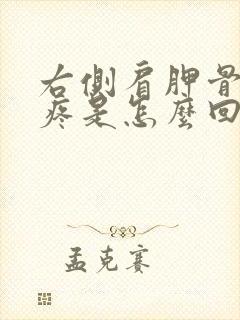 右側肩胛骨
疼是怎麼回
孟克賽